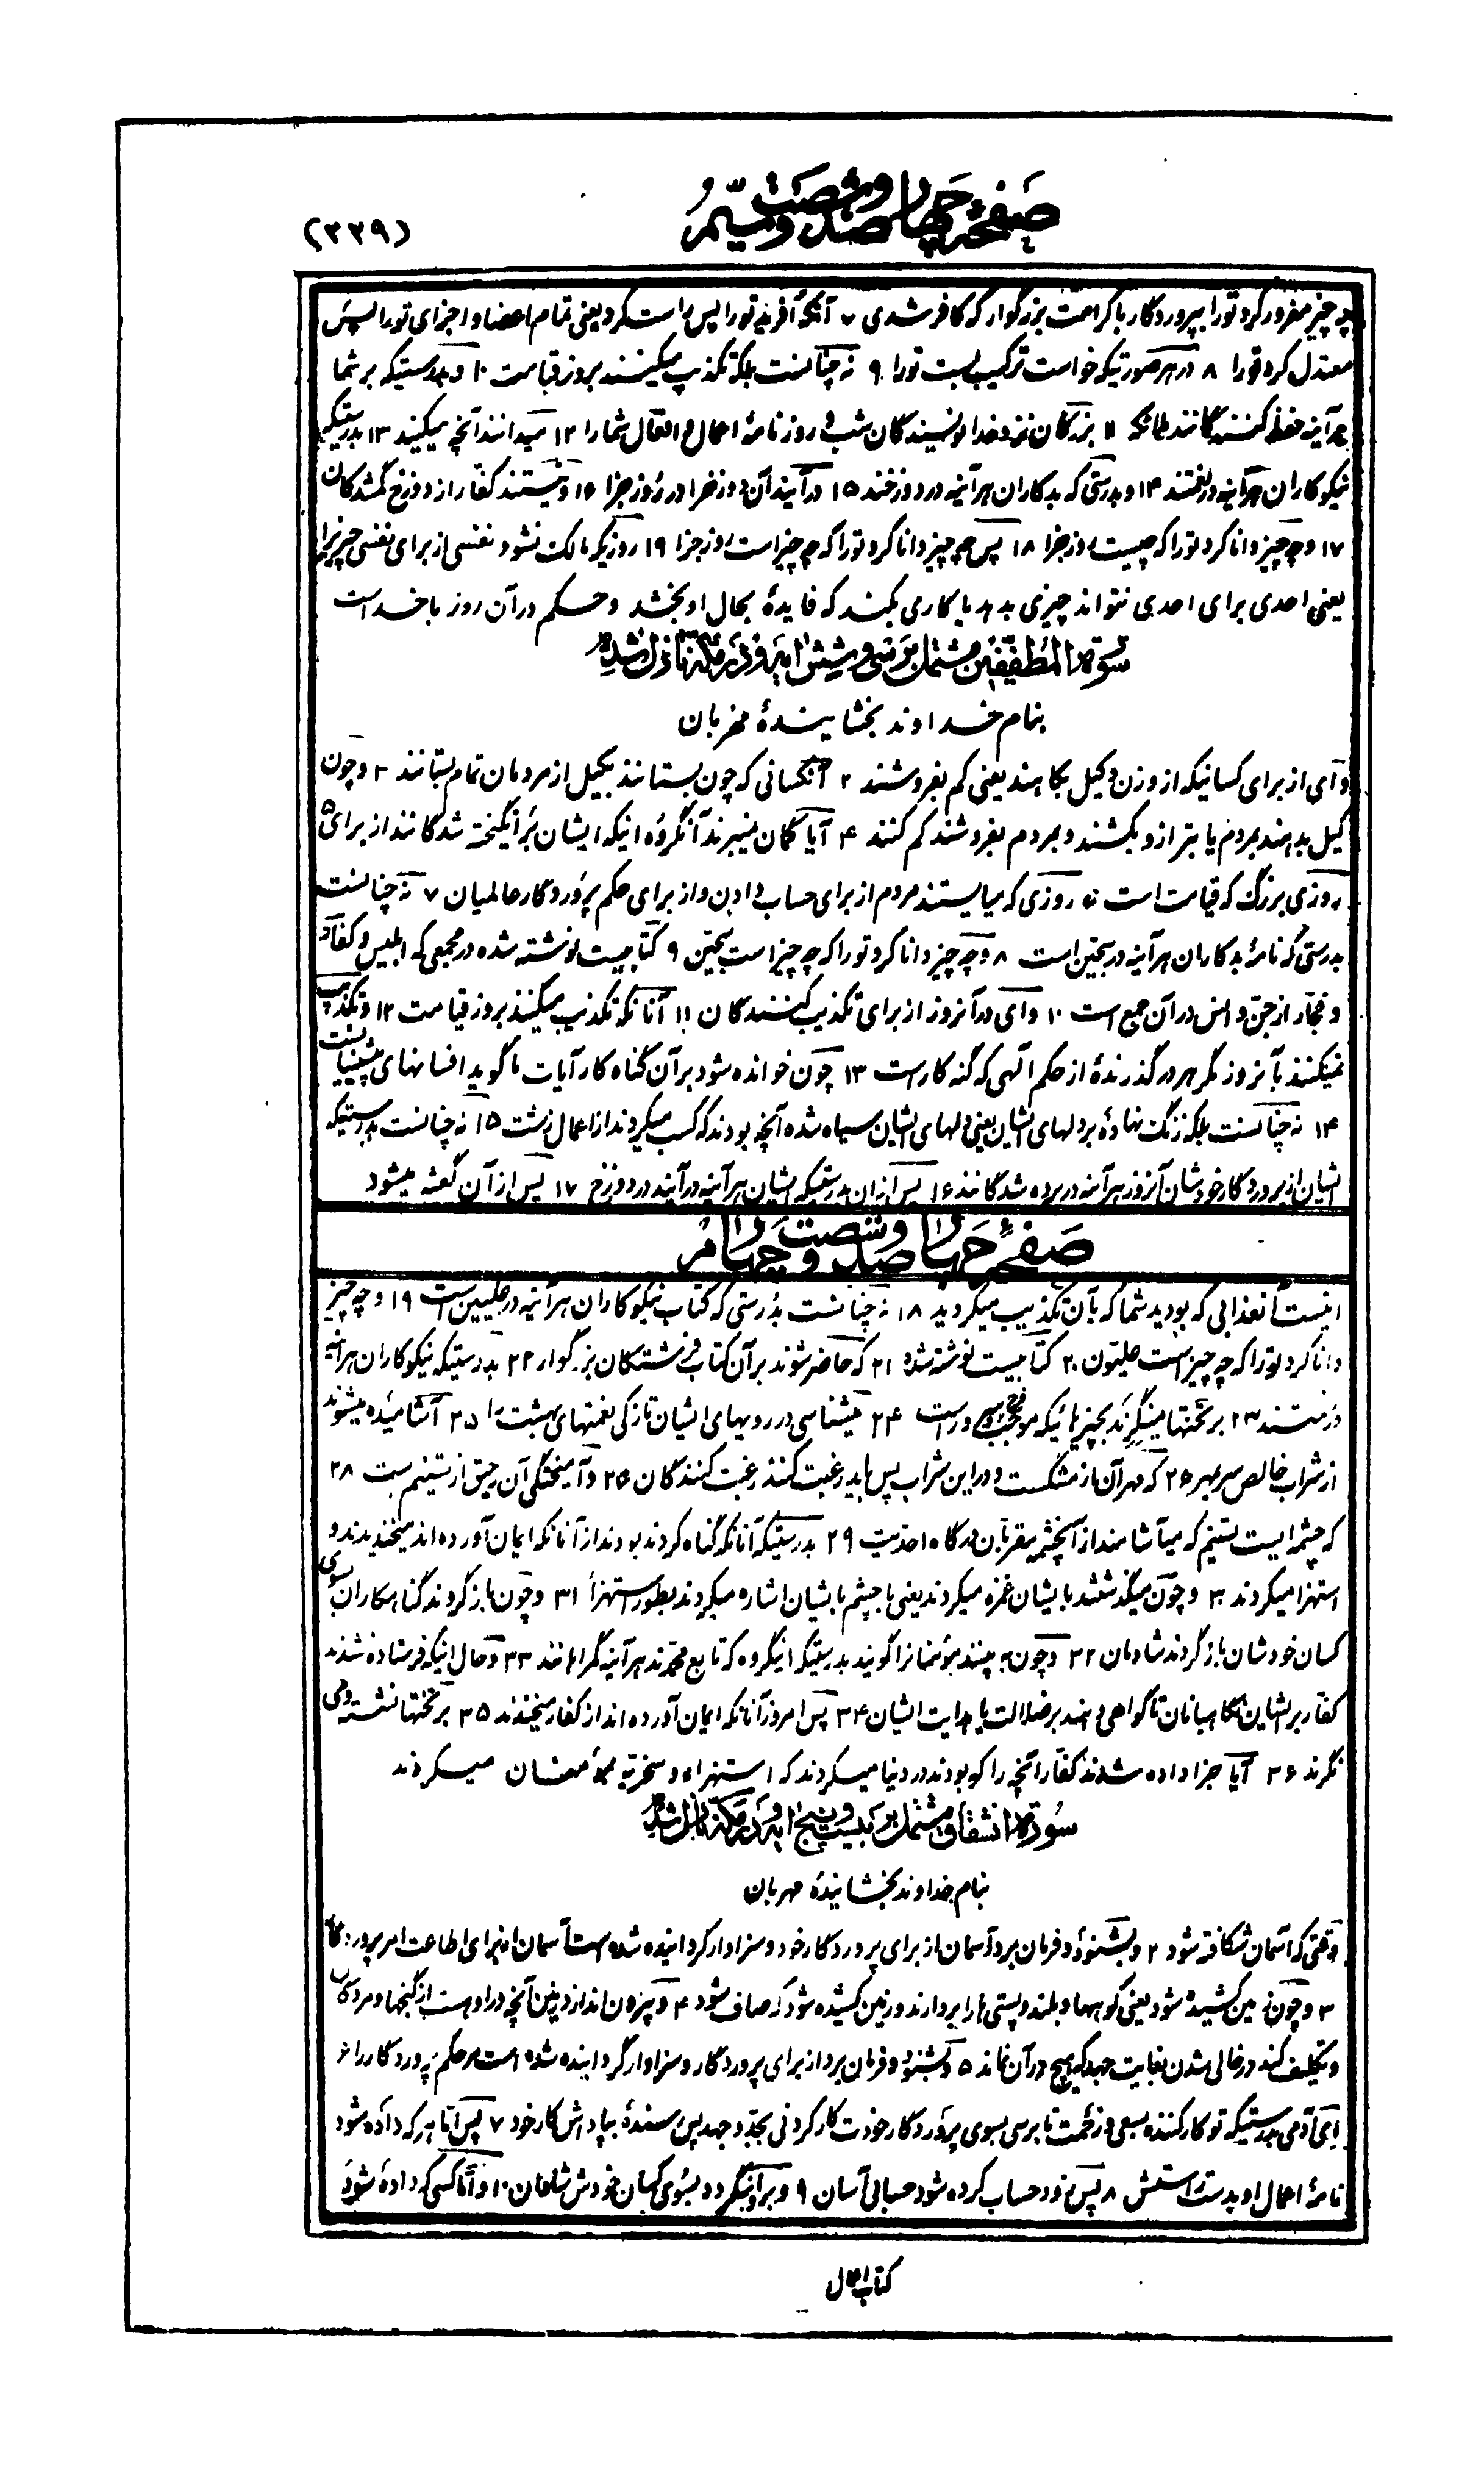 صفحه چهارصد و شصت و سیّم
(۲۲۹)
چه چیز مغرور کرد تو را بپروردگار با کرامت بزرگوار که کافر شدی ۷ آنکه آفرید تو را پس راست کرد یعنی تمام اعضا و اجزای تو را پس
معتدل کرد تو را ۸ در هر صورتیکه خواست ترکیب بست تو را ۹ نه چنانست بلکه تکذیب میکنند بروز قیامت ۱۰ و بدرستیکه بر شما
هرآینه حفظ کنندگانند ملائکه ۱۱ بزرگان نزد خدا نویسندگان شب و روز نامهٔ اعمال و افعال شما را ۱۲ میدانند آنچه میکنید ۱۳ بدرستیکه
نیکوکاران هرآینه در نعمتند ۱۴ و بدرستی که بدکاران هرآینه در دوزخند ۱۵ درآیند آن دوزخ را در روز جزا ۱۶ و نیستند کفّار از دوزخ گمشدکان
۱۷ و چه چیز دانا کرد تو را که چیست روز جزا ۱۸ پس چه چیز دانا کرد تو را که چه چیز است روز جزا ۱۹ روزیکه مالک نشود نفسی از برای نفسی چیزیرا
یعنی احدی برای احدی نتواند چیزی بدهد یا کاری بکند که فایدهٔ بحال او بخشد و حکم در آن روز با خداست
سورة المطفّفین مشتمل بر سی و شش آیه و در مکّه نازل شده
بنام خداوند بخشایندهٔ مهربان
وای از برای کسانیکه از وزن و کیل بکاهند یعنی کم بفروشند ۲ آنکسانی که چون بستانند بکیل از مردمان تمام بستانند ۳ و چون
کیل بدهند بمردم یا بترازو بکشند و بمردم بفروشند کم کنند ۴ آیا گمان نمیبرند آنگروه انیکه ایشان برانگیخته شدگانند از برای ۵
روزی بزرگ که قیامت است ۶ روزی که میایستند مردم از برای حساب دادن و از برای حکم پروردگار عالمیان ۷ نه چنانست
بدرستی که نامهٔ بدکاران هرآینه در سجّین است ۸ و چه چیز دانا کرد تو را که چه چیز است سجّین ۹ کتابیست نوشته شده در مجمعی که ابلیس و کفّار
و فجّار از جن و انس در آن جمع است ۱۰ وای در آنروز از برای تکذیب کنندگان ۱۱ آنانکه تکذیب میکنند بروز قیامت ۱۲ و تکذیب
نمیکنند بآنروز مگر هر درگذرندهٔ از حکم آلهی که گنه کار است ۱۳ چون خوانده شود بر آن گناه کار آیات ما گوید افسانهای پیشینیانست
۱۴ نه چنانست بلکه زنگ نهاده بر دلهای ایشان یعنی دلهای ایشان سیاه شده آنچه بودند که کسب میکردند از اعمال زشت ۱۵ نه چنانست بدرستیکه
ایشان از پروردگار خودشان آنروز هرآینه در پرده شدگانند ۱۶ پس از آن بدرستیکه ایشان هرآینه درآیند در دوزخ ۱۷ پس از آن گفته میشود
صفحه چهارصد و شصت و چهارم
اینست آنعذابی که بودید شما که بآن تکذیب میکردید ۱۸ نه چنانست بدرستی که کتاب نیکوکاران هرآینه در علیین است ۱۹ و چه چیز
دانا کرد تو را که چه چیز است علیّون ۲۰ کتابیست نوشته شده ۲۱ که حاضر شوند بر آن کتاب فرشتکان بزرگوار ۲۲ بدرستیکه نیکوکاران هرآینه
در نعمتند ۲۳ بر تختها مینگرند بچیزهائیکه موجب فرح و سرور است ۲۴ میشناسی در رویهای ایشان تازگی نعمتهای بهشت را ۲۵ آشامیده میشوند
از شراب خالص سر بمهر ۲۶ که مهر آن از مشکست و در این شراب پس باید رغبت کنند رغبت کنندگان ۲۷ و آمیختگی آن رحیق از تسنیم ست ۲۸
که چشمه ایست تسنیم که میآشامند از آنچشمه مقربان درگاه احدیت ۲۹ بدرستیکه آنانکه گناه کردند بودند از آنانکه ایمان آورده اند میخندیدند و
استهزا میکردند ۳۰ و چون میگذشتند بایشان غمزه میکردند یعنی با چشم بایشان اشاره میکردند بطور استهزاء ۳۱ و چون بازگردند گناهکاران بسوی
کسان خودشان بازگردند شادمان ۳۲ و چون ببینند مؤمنانرا گویند بدرستیکه اینگروه که تابع محمّدند هرآینه گمراهانند ۳۳ و حال انیکه فرستاده نشدند
کفّار بر ایشان نگاهبانان تا گواهی دهند بر ضلالت یا هدایت ایشان ۳۴ پس امروز آنانکه ایمان آورده اند از کفار میخندند ۳۵ بر تختها نشسته و می
نگرند ۳۶ آیا جزا داده شدند کفّار آنچه را که بودند در دنیا میکردند که استهزاء و سخریّه مؤمنان میکردند
سورة انشقاق مشتمل بر بیست و پنج آیه و در مکّه نازل شده
بنام خداوند بخشایندهٔ مهربان
وقتی که آسمان شکافته شود ۲ و بشنود و فرمان برد آسمان از برای پروردگار خود و سزاوار گردانیده شده است آسمان از برای اطاعت امر پروردگار
۳ و چون زمین کشیده شود یعنی کوهها و بلند و پستی ها را بردارند و زمین کشیده شود که صاف شود ۴ و بیرون اندازد زمین آنچه در اوست از گنجها و مردگان
و تکلیف کند در خالی شدن بغایت جهد که هیچ در آن نماند ۵ و بشنود و فرمان بردار برای پروردگار و سزاوار گردانیده شده است مر حکم پروردگار را ۶
ای آدمی بدرستیکه تو کار کننده بسعی و زحمت تا برسی بسوی پروردگار خودت کار کردنی بجدّ و جهد پس رسندهٔ بپاداش کار خود ۷ پس امّا هر که داده شود
نامهٔ اعمال او بدست راستش ۸ پس زود حساب کرده شود حسابی آسان ۹ و برگردد بسوی کسان خودش شادمان ۱۰ و امّا کسی که داده شود
کتاب اعمال